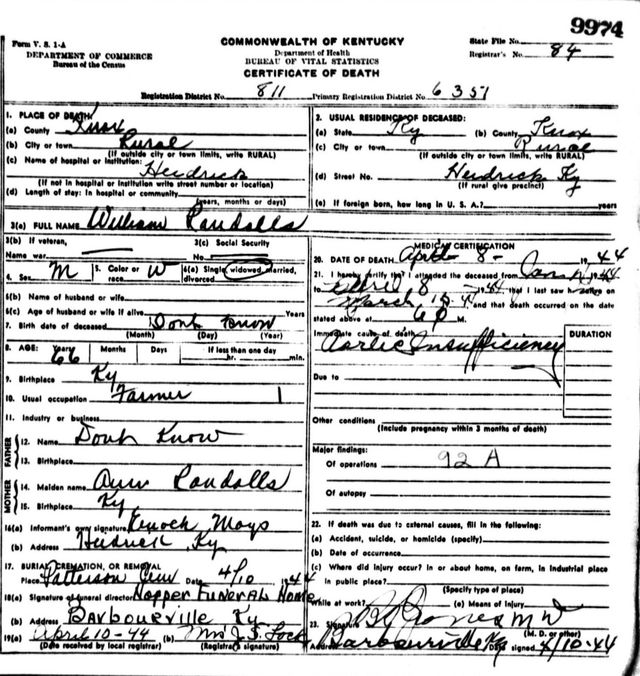 9974
Form V. S. 1-A
DEPARTMENT OF COMMERCE
Bureau of the Census
COMMONWEALTH OF KENTUCKY
Department of Health
BUREAU OF VITAL STATISTICS
CERTIFICATE OF DEATH
State File No.
Registrar's No. 84
Registration District No. 811 Primary Registration District No. 6351
1. PLACE OF DEATH
(a) County Knox
(b) City or town Rural
(If outside city or town limits, write RURAL)
(c) Name of hospital or institution:
Heidrick
(If not in hospital or institution write street number or location)
(d) Length of stay: In hospital or community
(years, months or days)
2. USUAL RESIDENCE OF DECEASED:
(a) State Ky (b) County Knox
(c) City or town Rural
(If outside city or town limits, write RURAL)
(d) Street No. Heidrick Ky
(If rural give precinct)
(e) If foreign born, how long in U. S. A.? years
3(a) FULL NAME William Randalls
3(b) If veteran,
Name war
3(c) Social Security
No.
4. Sex M 5. Color or race W 6(a) Single, widowed, married, divorced
6(b) Name of husband or wife
6(c) Age of husband or wife if alive Years
7. Birth date of deceased Dont Know
(Month) (Day) (Year)
8. AGE: Years 66 Months Days If less than one day
hr. min.
9. Birthplace Ky
10. Usual occupation Farmer 1
11. Industry or business
FATHER
12. Name Dont Know
13. Birthplace
MOTHER
14. Maiden name Ann Randalls
15. Birthplace Ky
16(a) Informant's own signature Enoch Mays
(b) Address Heidrick Ky
17. BURIAL, CREMATION, OR REMOVAL
Place Patterson Cem Date 4/10 1944
18(a) Signature of funeral director Hopper Funeral Home
(b) Address Barbourville Ky
19(a) April 10-44 (b) Mrs J. S. Lock
(Date received by local registrar) (Registrar's signature)
MEDICAL CERTIFICATION
20. DATE OF DEATH April 8- 1944
21. I hereby certify that I attended the deceased from Jan 1944
to April 8 1944 that I last saw h alive on
March 15-44 and that death occurred on the date
stated above at 6 P M.
Immediate cause of death DURATION
Aortic Insufficiency
Due to
Other conditions
(Include pregnancy within 3 months of death)
Major findings:
Of operations 92 A
Of autopsy
22. If death was due to external causes, fill in the following:
(a) Accident, suicide, or homicide (specify)
(b) Date of occurrence
(c) Where did injury occur? In or about home, on farm, in industrial place
in public place?
(Specify type of place)
While at work? (e) Means of injury
23. Signature Jones M D
(M. D. or other)
Address Barbourville Ky Date signed 4/10-44